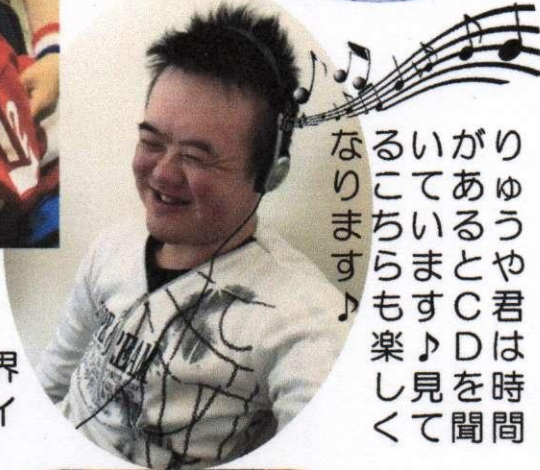 りゅうや君は時間
があるとCDを聞
いています♪見て
るこちらも楽しく
なります♪
界
イ
12